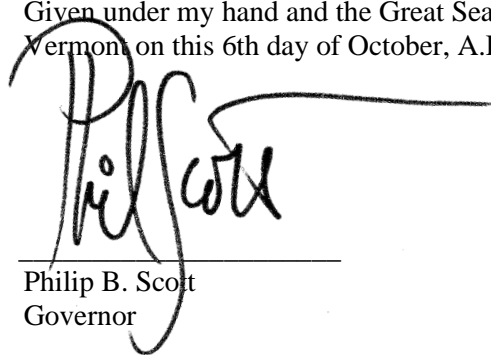 Given under my hand and the Great Sea
Vermont on this 6th day of October, A.
Phil Scott
Philip B. Scott
Governor